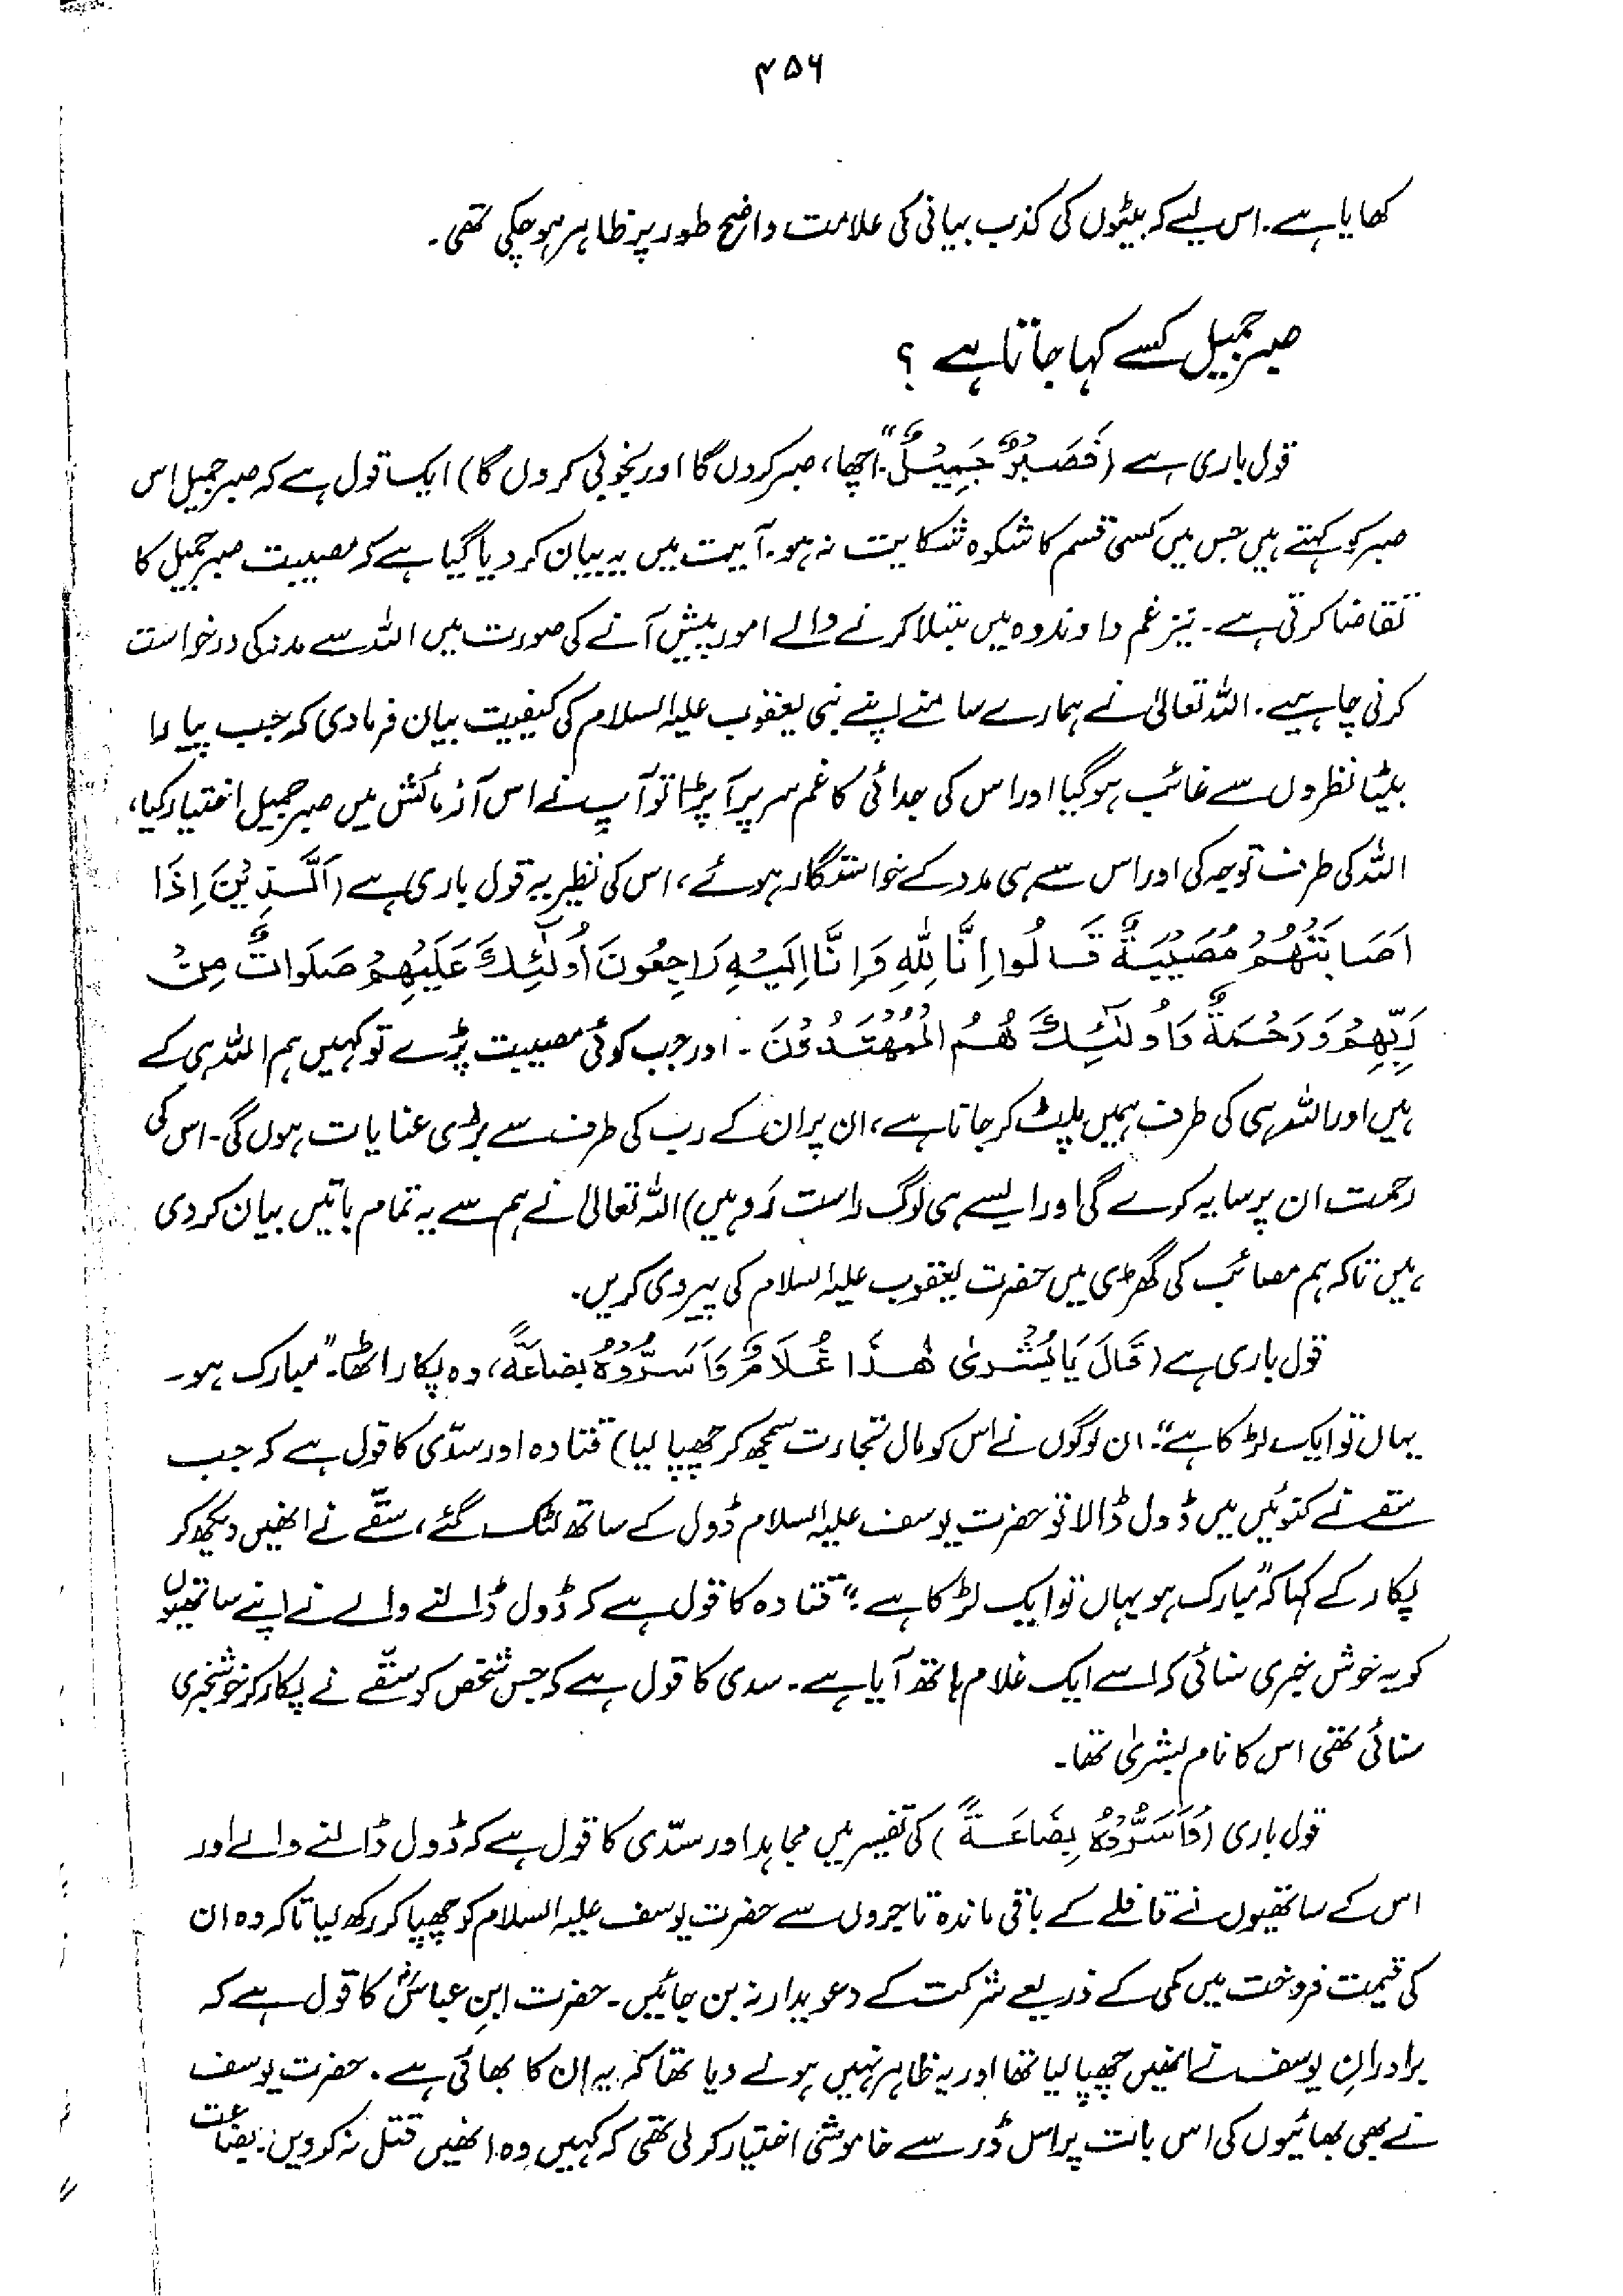 ۴۵۶
کھایا ہے۔ اس لیے کہ بیٹوں کی کذب بیانی کی علامت واضح طور پر ظاہر ہو چکی تھی۔
صبر جمیل کسے کہا جاتا ہے ؟
قول باری ہے (فَصَبْرٌ جَمِيْلٌ۔ "اچھا، صبر کروں گا اور بخوبی کروں گا) ایک قول ہے کہ صبر جمیل اس
صبر کو کہتے ہیں جس میں کسی قسم کا شکوہ شکایت نہ ہو۔ آیت میں یہ بیان کر دیا گیا ہے کہ مصیبت صبر جمیل کا
تقاضا کرتی ہے۔ نیز غم و اندوہ میں مبتلا کرنے والے امور پیش آنے کی صورت میں اللہ سے مدد کی درخواست
کرنی چاہیے۔ اللہ تعالیٰ نے ہمارے سامنے اپنے نبی یعقوب علیہ السلام کی کیفیت بیان فرما دی کہ جب پیارا
بیٹا نظروں سے غائب ہو گیا اور اس کی جدائی کا غم سر پر آ پڑا تو آپ نے اس آزمائش میں صبر جمیل اختیار کیا،
اللہ کی طرف توجہ کی اور اس سے ہی مدد کے خواستگار ہوئے، اس کی نظیر یہ قول باری ہے (اَلَّذِيْنَ اِذَا
اَصَابَتْهُمْ مُصِيْبَةٌ قَالُوا اِنَّا لِلّٰهِ وَاِنَّا اِلَيْهِ رَاجِعُونَ اُولٰٓئِكَ عَلَيْهِمْ صَلَوَاتٌ مِنْ
رَبِّهِمْ وَرَحْمَةٌ وَاُولٰٓئِكَ هُمُ الْمُهْتَدُوْنَ۔ اور جب کوئی مصیبت پڑے تو کہیں ہم اللہ ہی کے
ہیں اور اللہ ہی کی طرف ہمیں پلٹ کر جانا ہے، ان پر ان کے رب کی طرف سے بڑی عنایات ہوں گی۔ اس کی
رحمت ان پر سایہ کرے گی اور ایسے ہی لوگ راست رَو ہیں) اللہ تعالیٰ نے ہم سے یہ تمام باتیں بیان کر دی
ہیں تاکہ ہم مصائب کی گھڑی میں حضرت یعقوب علیہ السلام کی پیروی کریں۔
قول باری ہے (قَالَ يَا بُشْرىٰ هٰذَا غُلَامٌ وَاَسَرُّوْهُ بِضَاعَةً، وہ پکار اٹھا۔ "مبارک ہو۔
یہاں تو ایک لڑکا ہے"۔ ان لوگوں نے اس کو مال تجارت سمجھ کر چھپا لیا) قتادہ اور سدّی کا قول ہے کہ جب
سقے نے کنوئیں میں ڈول ڈالا تو حضرت یوسف علیہ السلام ڈول کے ساتھ لٹک گئے، سقّے نے انھیں دیکھ کر
پکار کے کہا کہ "مبارک ہو یہاں تو ایک لڑکا ہے"۔ قتادہ کا قول ہے کہ ڈول ڈالنے والے نے اپنے ساتھیوں
کو یہ خوش خبری سنائی کہ اسے ایک غلام ہاتھ آیا ہے۔ سدی کا قول ہے کہ جس شخص کو سقّے نے پکار کر خوشخبری
سنائی تھی اس کا نام بشریٰ تھا۔
قول باری (وَاَسَرُّوْهُ بِضَاعَةً) کی تفسیر میں مجاہد اور سدّی کا قول ہے کہ ڈول ڈالنے والے اور
اس کے ساتھیوں نے قافلے کے باقی ماندہ تاجروں سے حضرت یوسف علیہ السلام کو چھپا کر رکھ لیا تاکہ وہ ان
کی قیمت فروخت میں کمی کے ذریعے شرکت کے دعویدار نہ بن جائیں۔ حضرت ابنِ عباسؓ کا قول ہے کہ
برادرانِ یوسف نے انھیں چھپا لیا تھا اور یہ ظاہر نہیں ہونے دیا تھا کہ یہ ان کا بھائی ہے۔ حضرت یوسف
نے بھی بھائیوں کی اس بات پر اس ڈر سے خاموشی اختیار کر لی تھی کہ کہیں وہ انھیں قتل نہ کر دیں۔ بضاعت